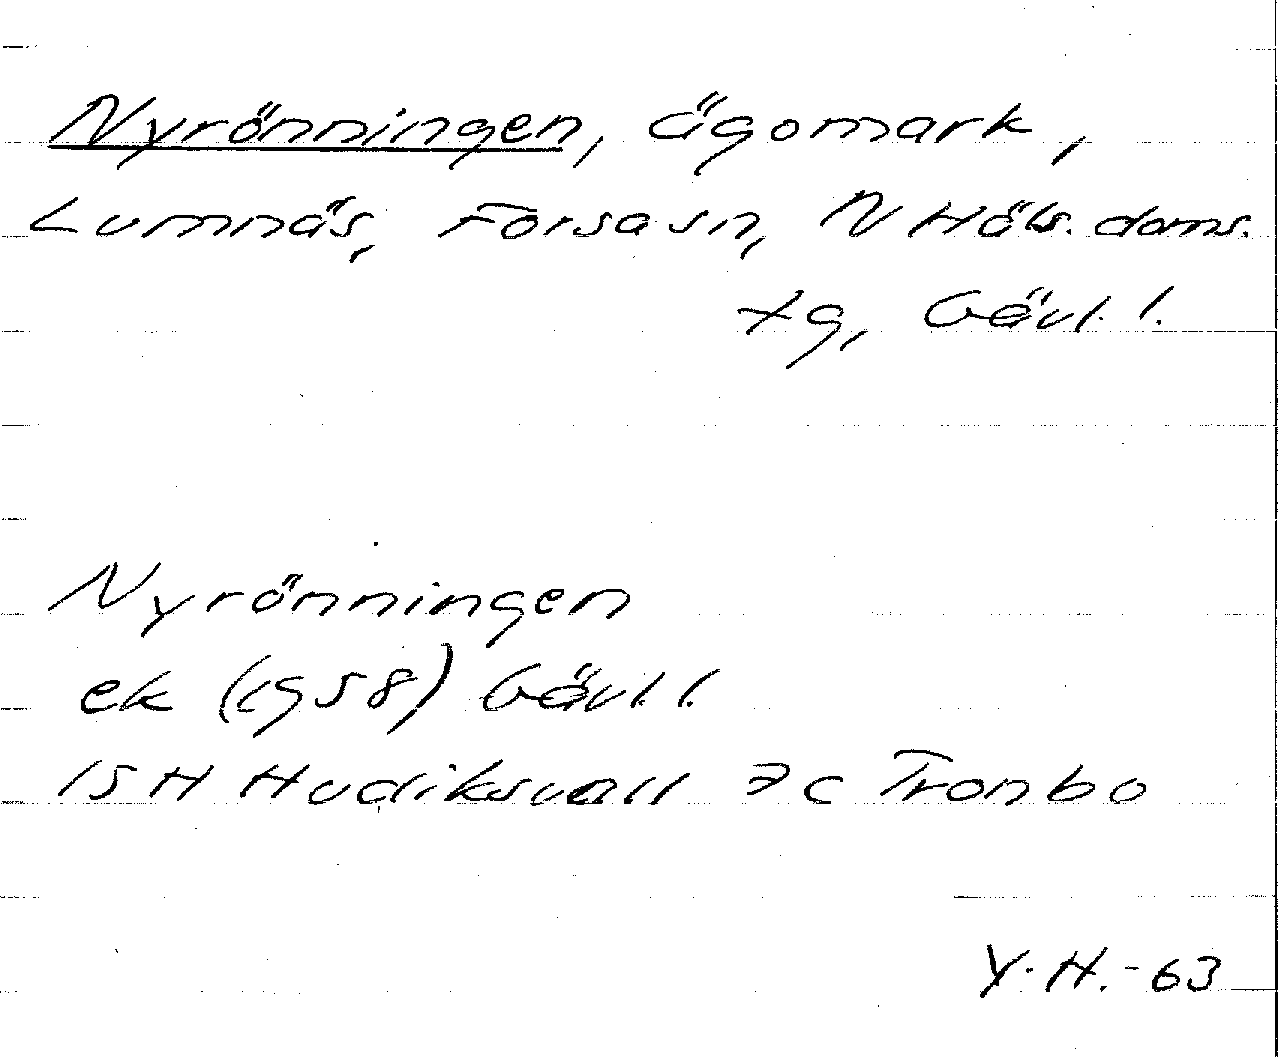 Nyrönningen, ägomark,
Lumnäs, Forsa sn, N Häls. doms.
tg, Gävl. l.
Nyrönningen
ek (1958) Gävl. l.
15H Hudiksvall 7c Trombo
Y.H.-63